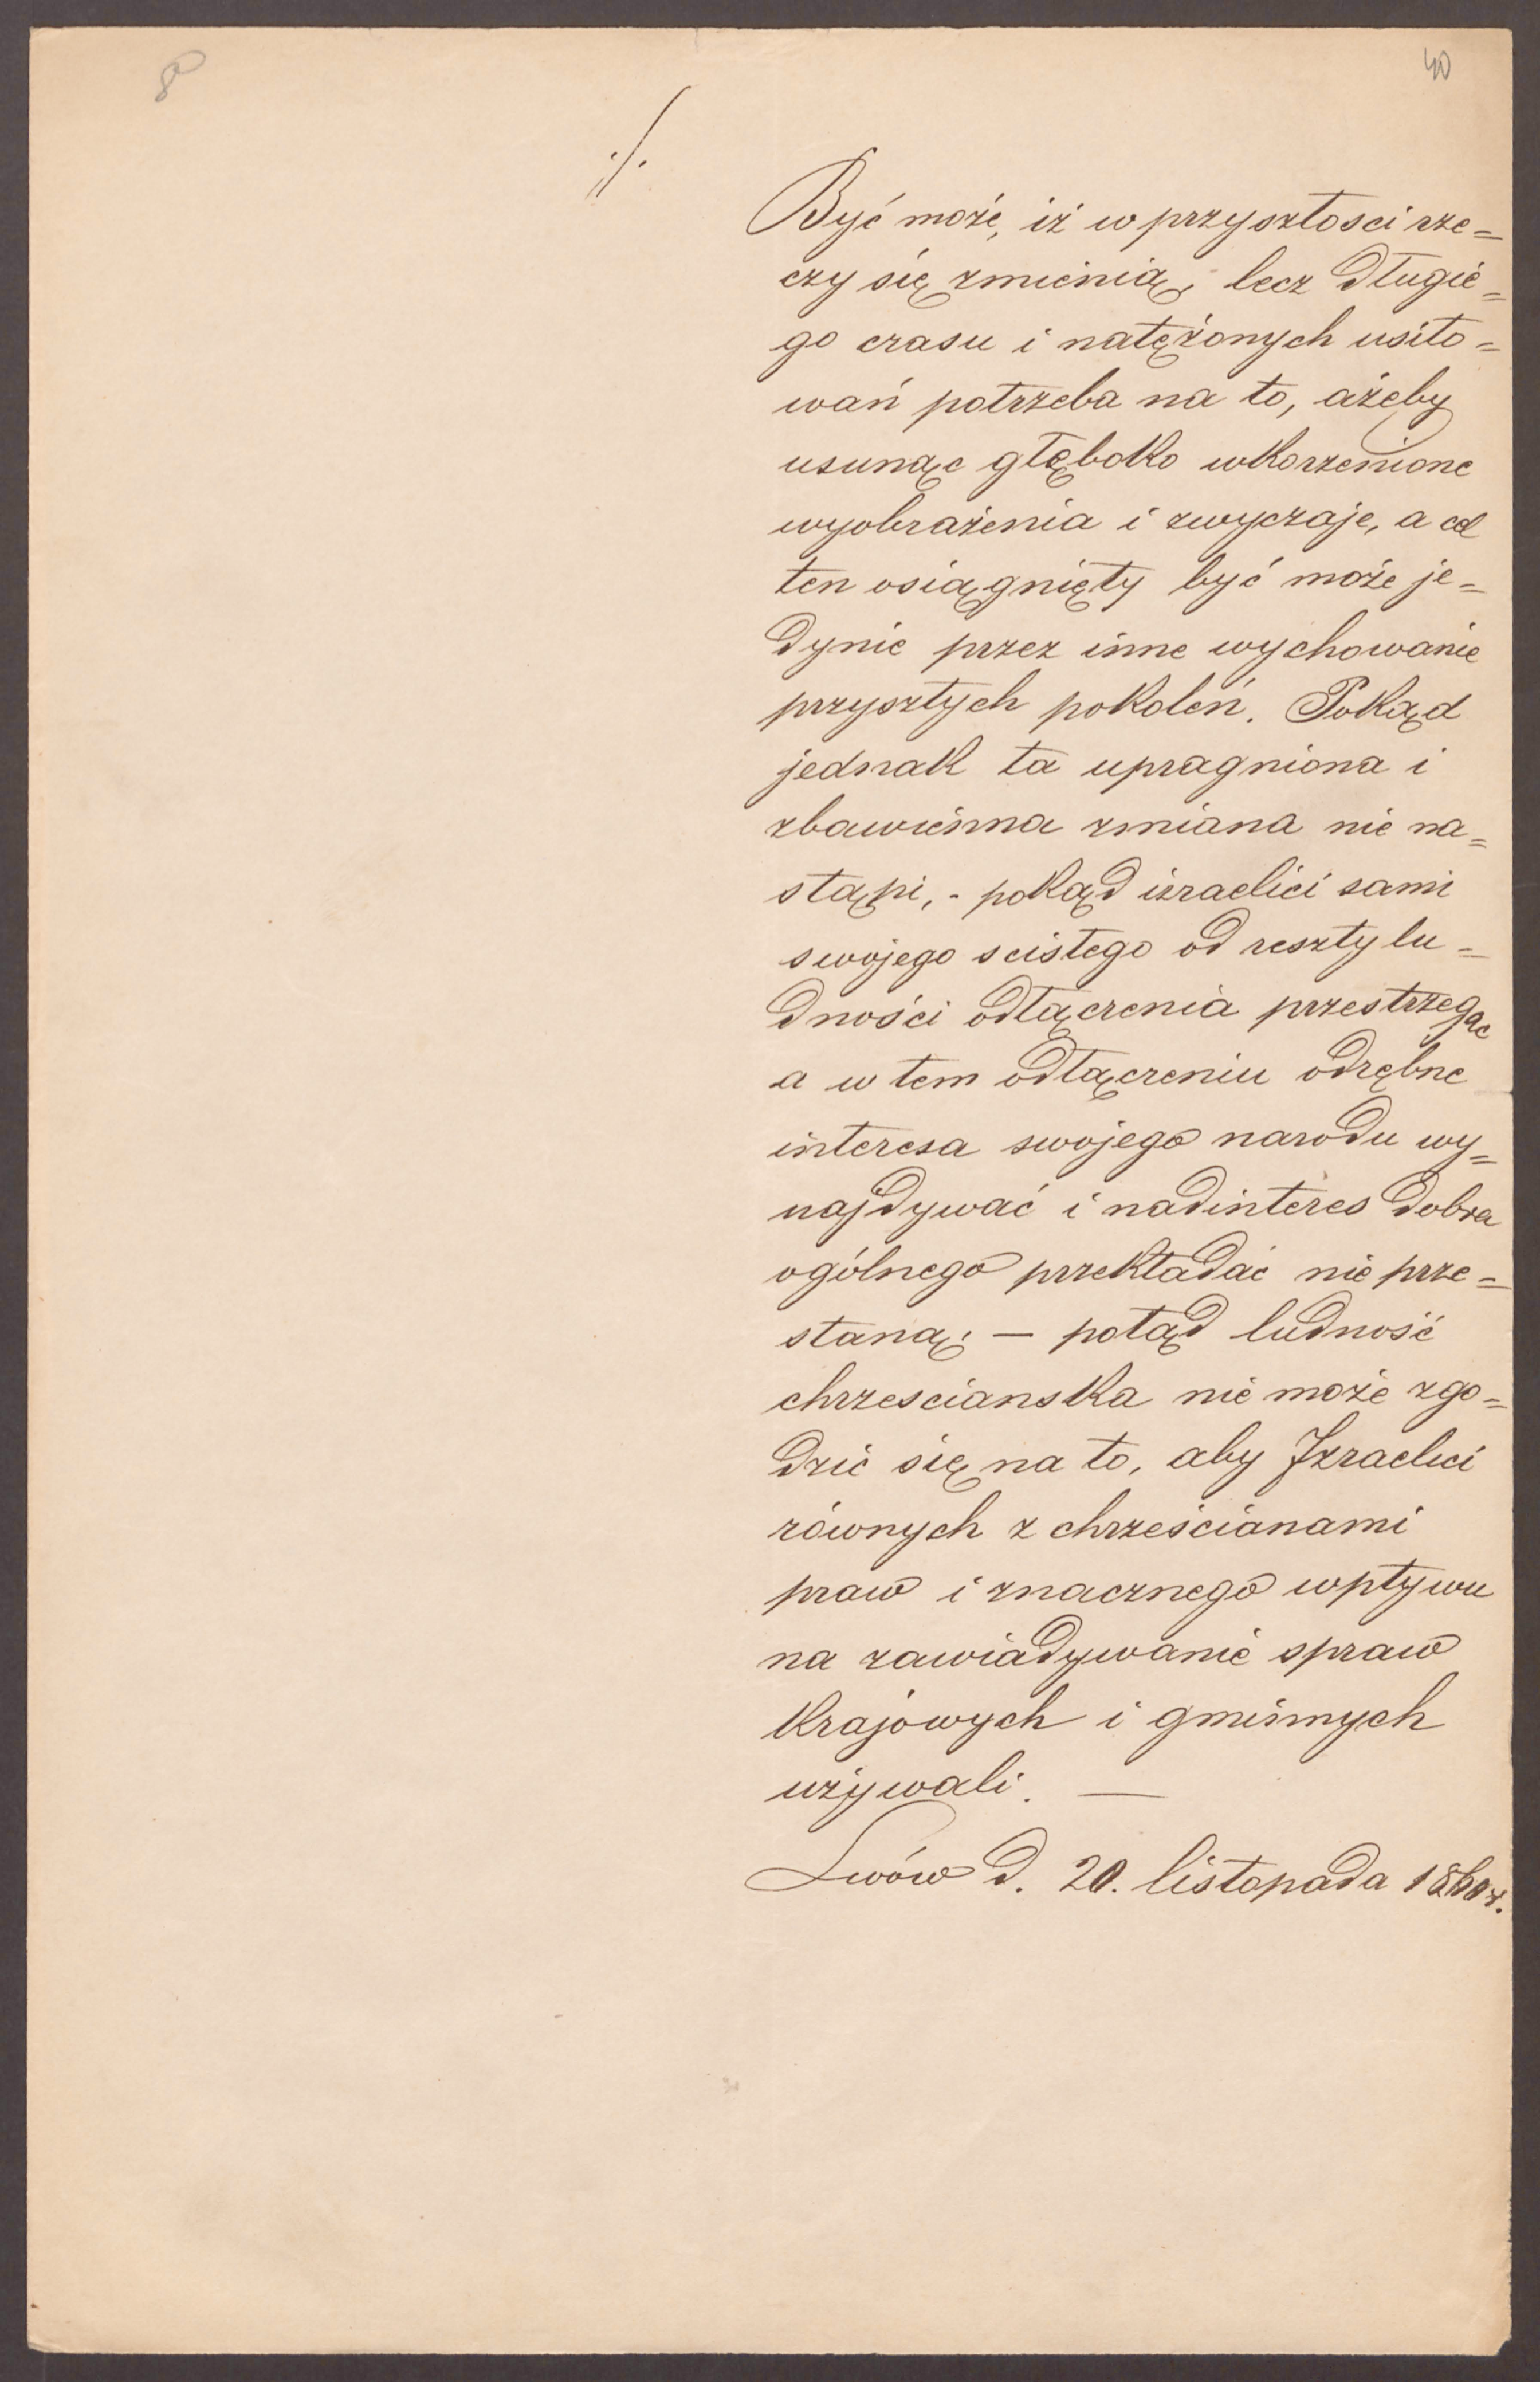 8
40
./.
Być może, iż w przyszłosci rze=
czy się zmienią, lecz długie=
go czasu i natężonych usiło=
wań potrzeba na to, ażeby
usunąc głęboko wkorzenione
wyobrażenia i zwyczaje, a cel
ten osiągnięty być może je=
dynie przez inne wychowanie
przyszłych pokoleń. Pokąd
jednak ta upragniona i
zbawienna zmiana nie na=
stąpi, - pokąd izraelici sami
swojego scisłego od reszty lu=
dności odłączenia przestrzegac
a w tem odłączeniu odrębne
interesa swojego narodu wy=
najdywać i nad interes dobra
ogólnego przekładać nie prze=
staną; — potąd ludność
chrzescianska nie może zgo=
dzić się na to, aby Izraelici
równych z chrześcianami
praw i znacznego wpływu
na zawiadywanie spraw
krajowych i gminnych
używali. —
Lwów d. 20. listopada 1860 r.